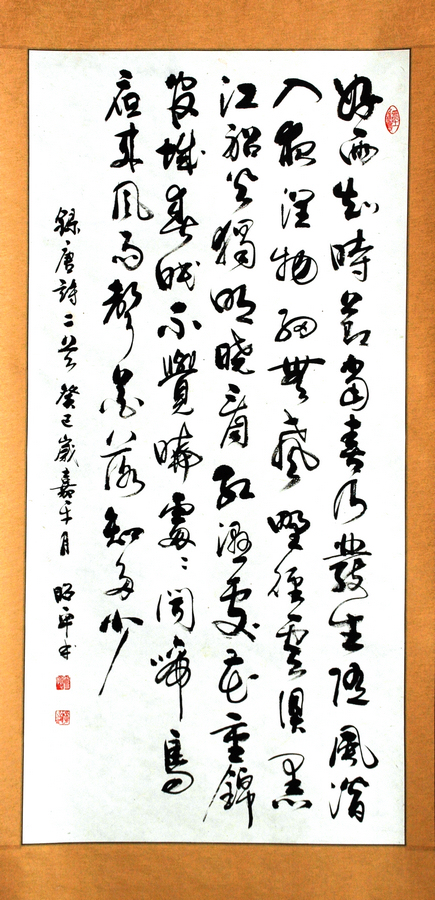 好雨知時節當春乃發生随風潛
入夜潤物細無聲野徑雲俱黑
江船火獨明曉看紅濕處花重錦
官城春眠不覺曉處〻聞啼鳥
夜来風雨聲花落知多少
錄唐詩二首癸巳歲嘉平月 昭平书